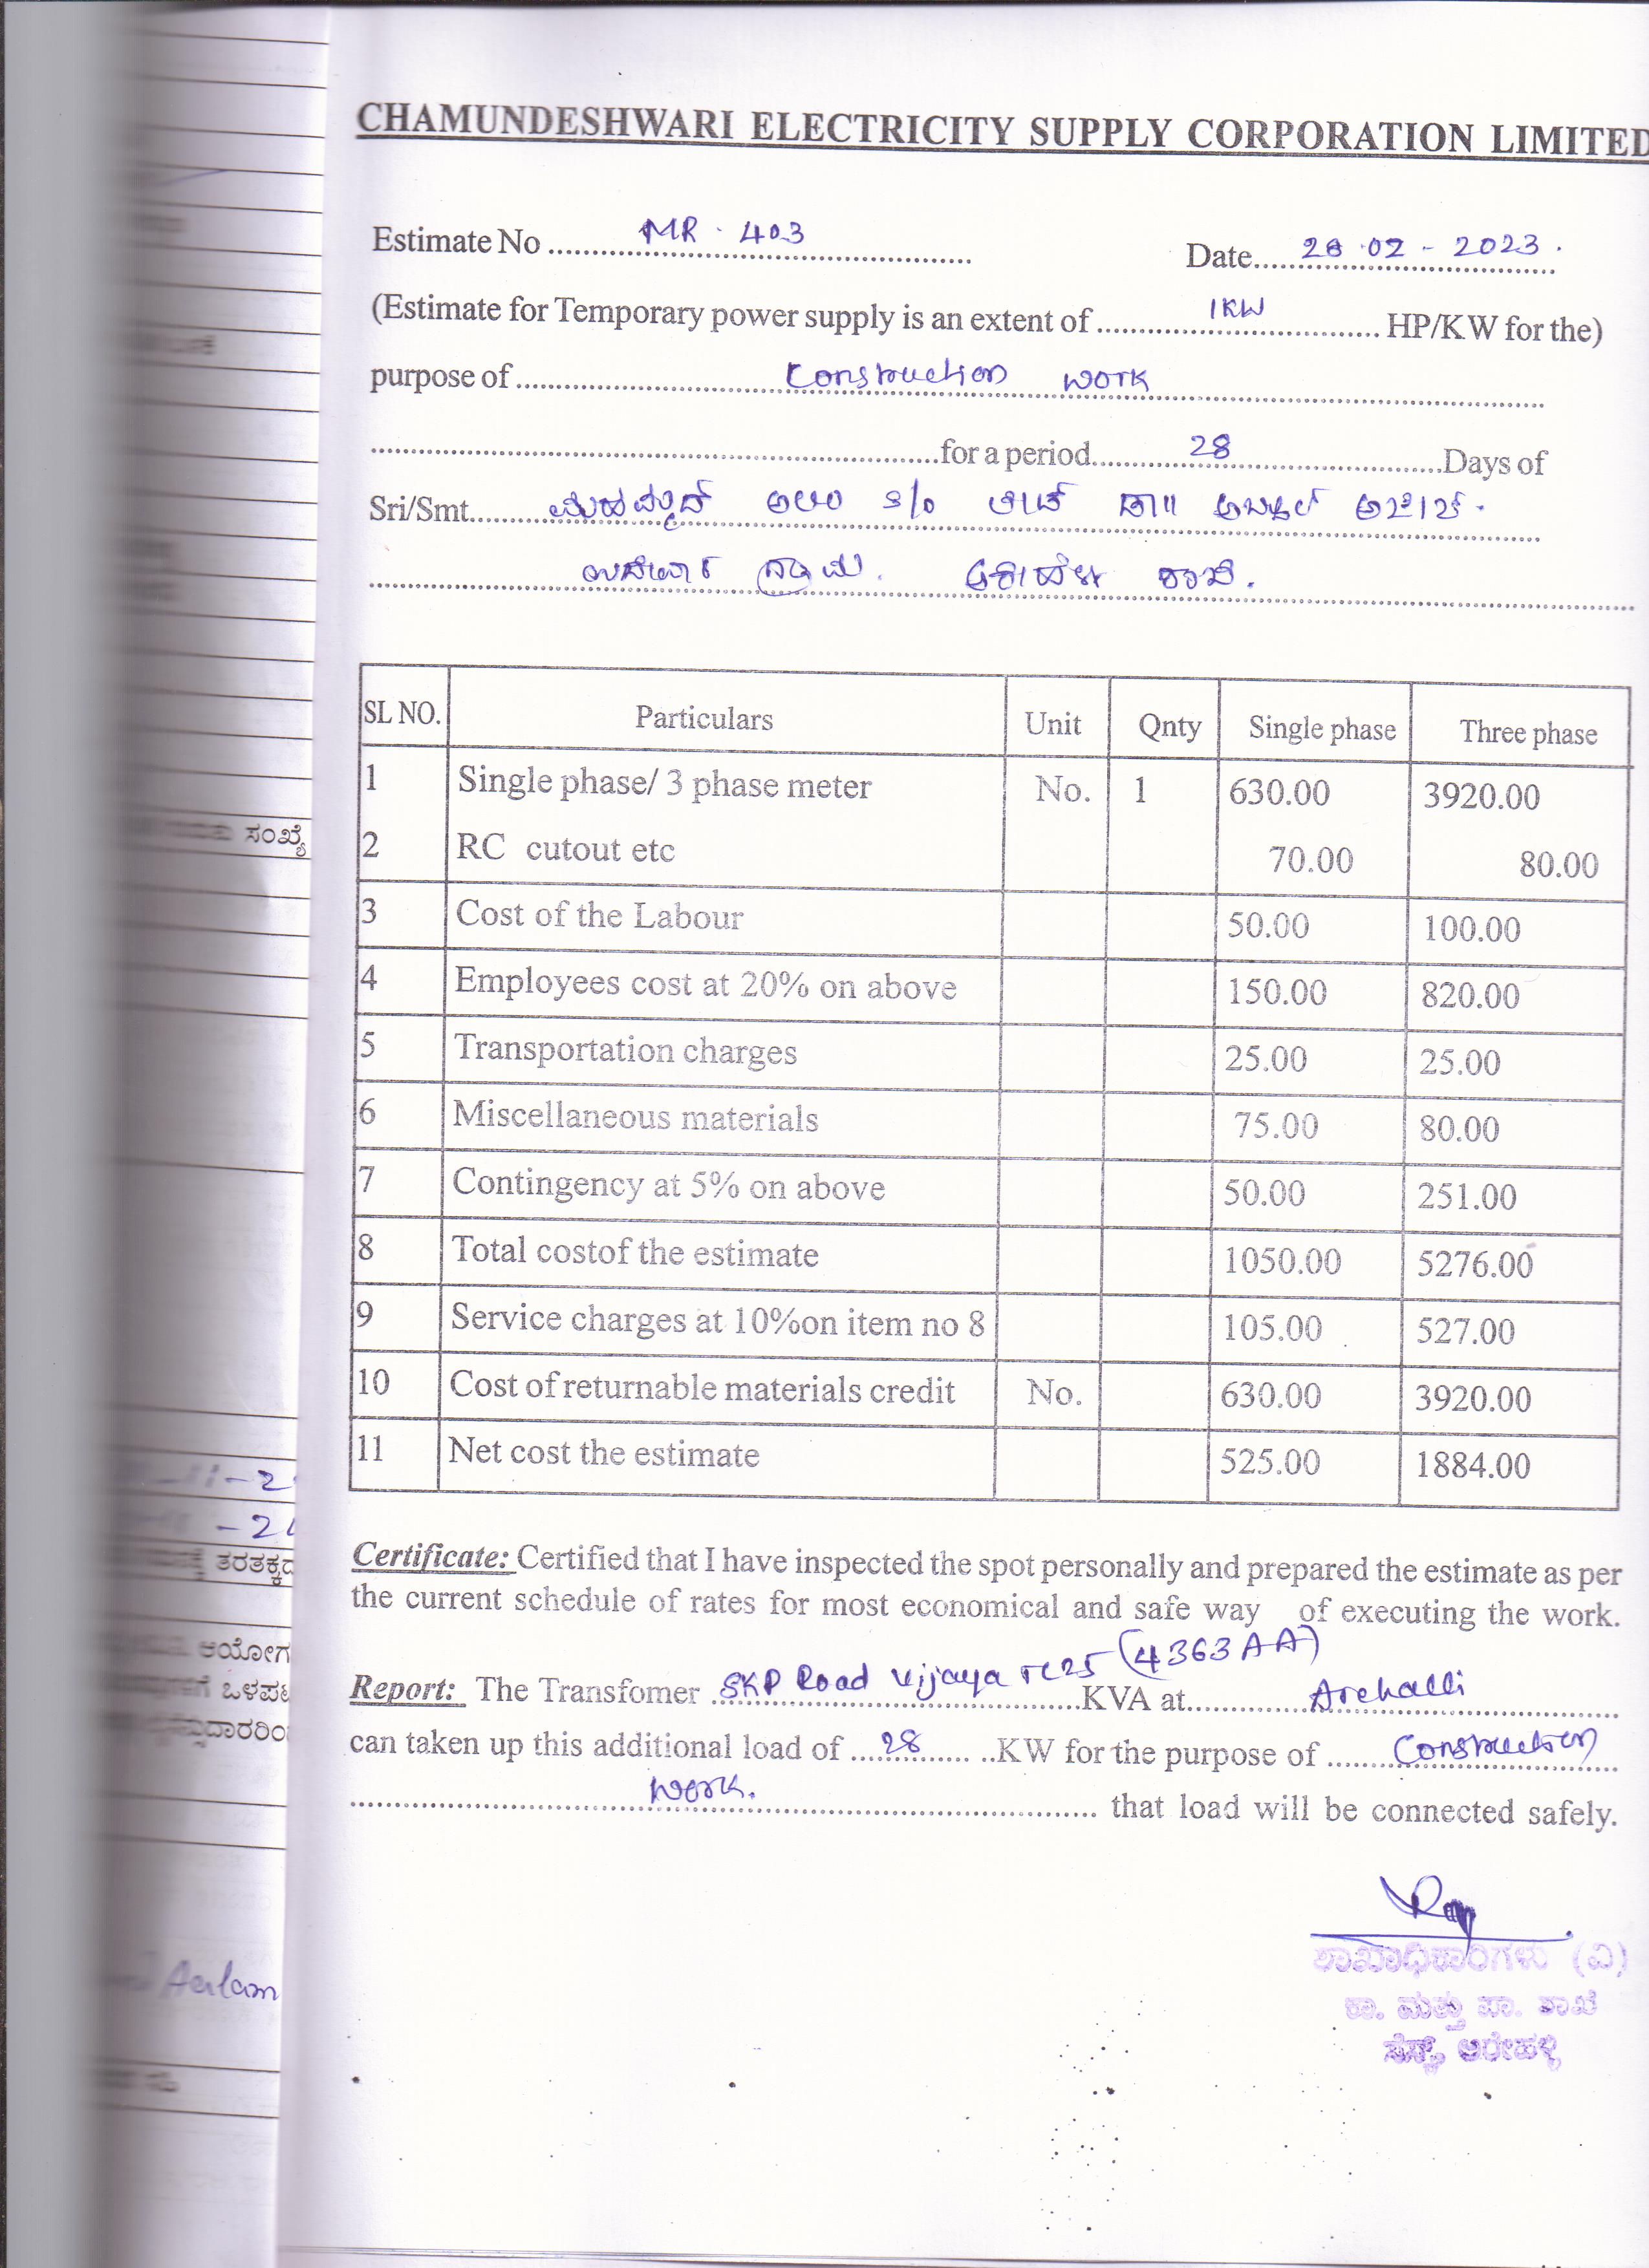 CHAMUNDESHWARI ELECTRICITY SUPPLY CORPORATION LIMITED
Estimate No ........ MR - 403 ........ Date..... 28-02-2023.
(Estimate for Temporary power supply is an extent of ..... 1KW ..... HP/KW for the)
purpose of ........ Construction work ........
........for a period..... 28 .....Days of
Sri/Smt..... ಮಹಮ್ಮದ್ ಆಲಂ S/o
ಗ್ರಾಮ. ಅರೇಹಳ್ಳಿ ಶಾಖೆ.
SL NO. Particulars Unit Qnty Single phase Three phase
1 Single phase/ 3 phase meter No. 1 630.00 3920.00
2 RC cutout etc 70.00 80.00
3 Cost of the Labour 50.00 100.00
4 Employees cost at 20% on above 150.00 820.00
5 Transportation charges 25.00 25.00
6 Miscellaneous materials 75.00 80.00
7 Contingency at 5% on above 50.00 251.00
8 Total costof the estimate 1050.00 5276.00
9 Service charges at 10%on item no 8 105.00 527.00
10 Cost of returnable materials credit No. 630.00 3920.00
11 Net cost the estimate 525.00 1884.00
Certificate: Certified that I have inspected the spot personally and prepared the estimate as per
the current schedule of rates for most economical and safe way of executing the work.
Report: The Transfomer ..... SKP Road Vijaya TC25 (4363AA) .....KVA at..... Arehalli
can taken up this additional load of .... 28 ..... ..KW for the purpose of ..... Construction
..... work. ..... that load will be connected safely.
ಶಾಖಾಧಿಕಾರಿಗಳು (ವಿ)
ಕಾ. ಮತ್ತು ಪಾ. ಶಾಖೆ
ಸೆಸ್ಕ್, ಅರೇಹಳ್ಳಿ
ಸಂಖ್ಯೆ
Aalam